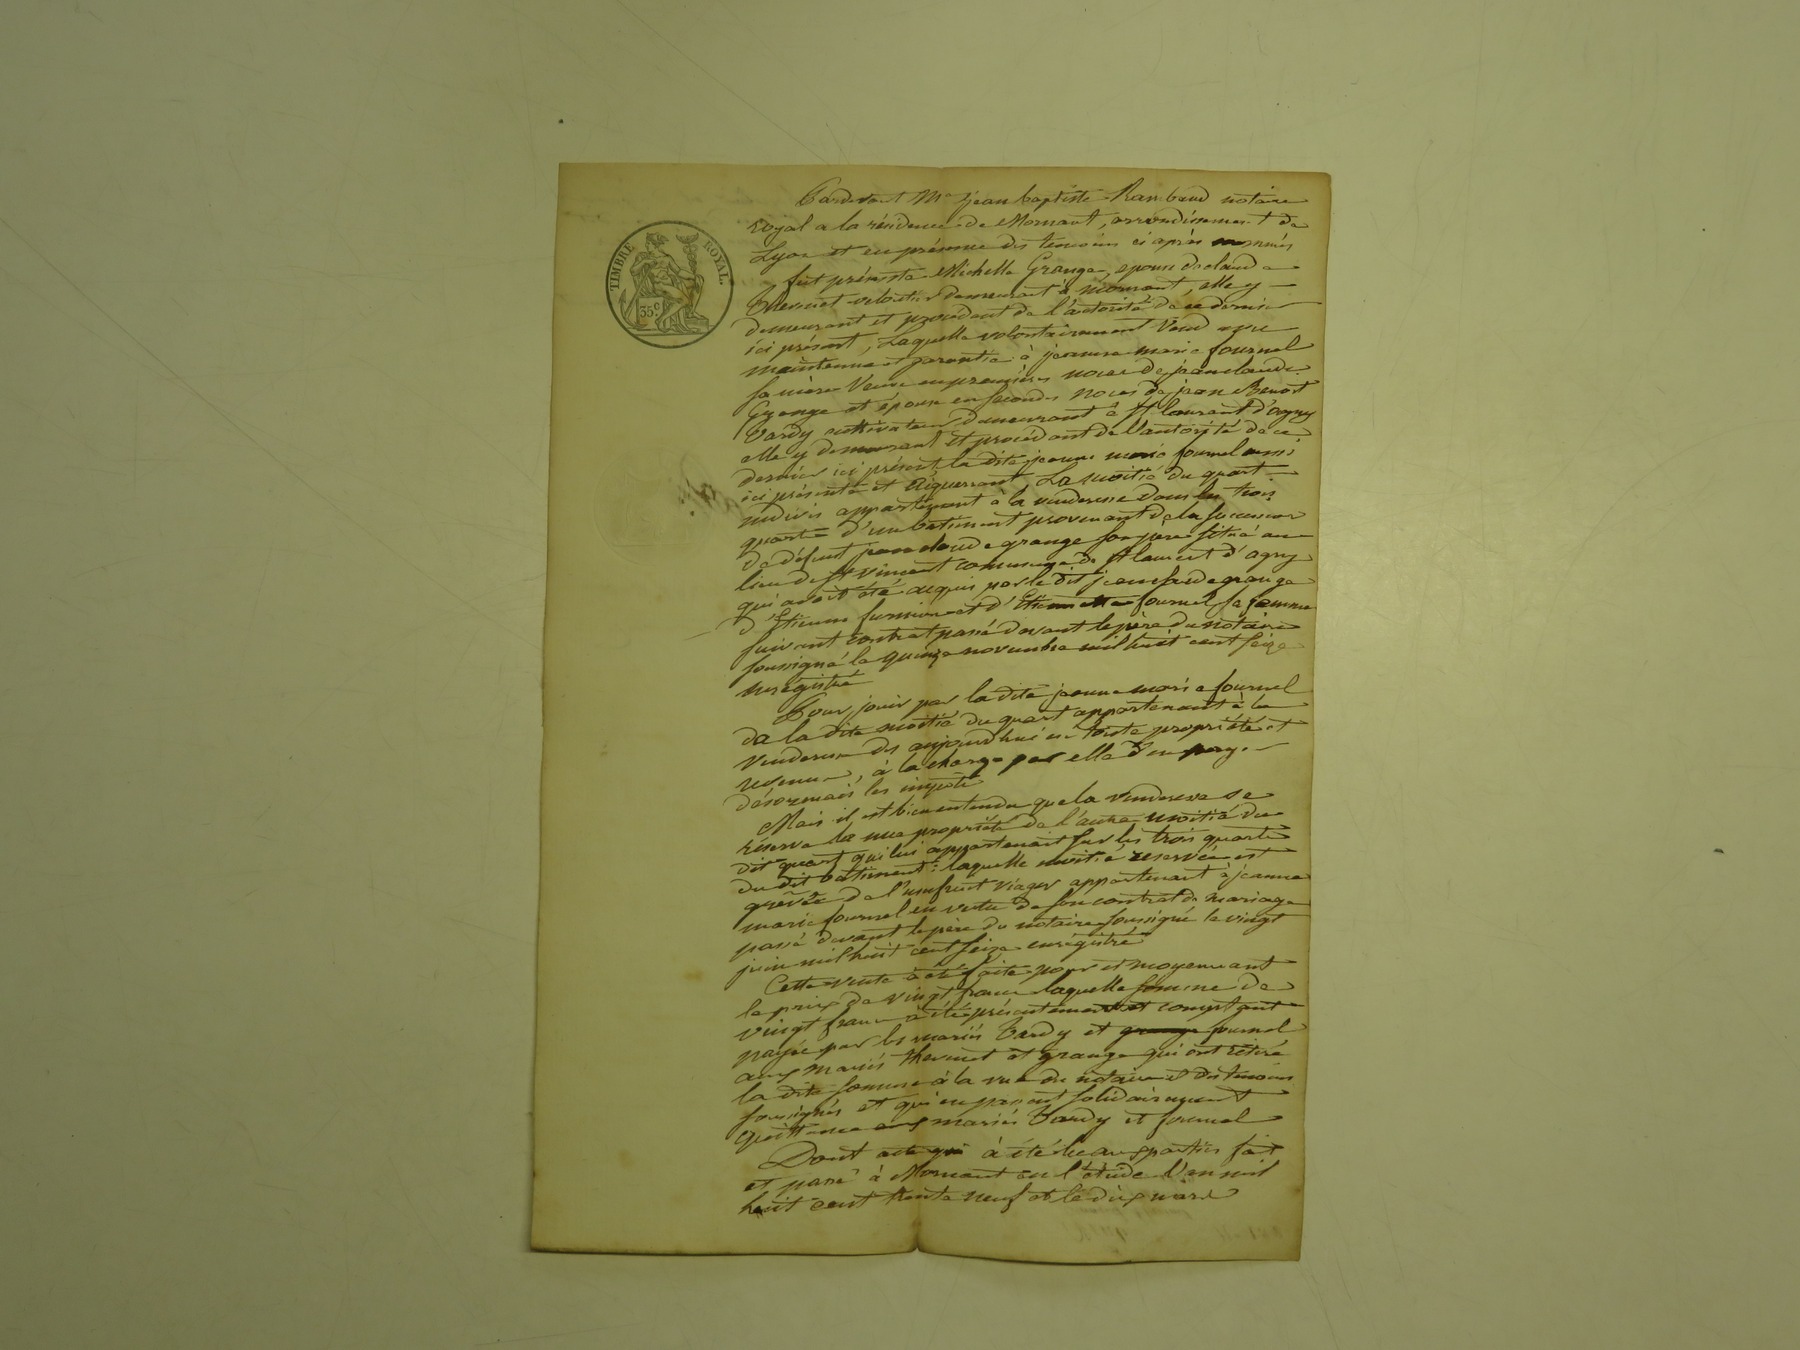 TIMBRE ROYAL.
35c
Pardevant Me jean baptiste Rambaud notaire
royal a la résidence de Mornant, arrondissement de
Lyon et en présence des temoins ci après nommés
fut présente Michelle Grange, epouse de claude
Thevenet veloutier demeurant à mornant, elle y
demeurant et procedant de l'autorité de ce dernier
ici présent, Laquelle volontairement Vend avec
maintenue et garantie à jeanne marie fournel
sa mère Veuve en premières noces de jean claude
Grange et épouse en secondes noces de jean Benoit
Tardy cultivateur demeurant à st laurent d'agny
elle y demeurant et procédant de l'autorité de ce
dernier ici présent la dite jeanne marie fournel aussi
ici présente et acquerrant La moitié du quart
indivis appartenant à la venderesse dans les trois
quarts d'un batiment provenant de la succession
de défunt jean claude grange son père situé au
lieu de st vincent commune de st laurent d'agny
qui avoit été acquis par le dit jean claude grange
d'Etienne et d'Etiennette fournel sa femme
suivant contrat passé devant le père du notaire
soussigné le quinze novembre mil huit cent seize
enregistré
Pour jouir par la dite jeanne marie fournel
de la dite moitié du quart appartenant à la
venderesse des aujourdhui en toute propriété et
revenu, à la charge par elle d'en payer
désormais les impôts
Mais il est bien entendu que la venderesse se
réserve la nue propriété de l'autre moitié du
dit quart qui lui appartenait sur les trois quarts
du dit bâtiment: laquelle moitié réservée est
grevée de l'usufruit viager appartenant à jeanne
marie fournel en vertu de son contrat de mariage
passé devant le père du notaire soussigné le vingt
juin mil huit cent seize enregistré
Cette vente a été faite pour et moyennant
le prix de vingt francs laquelle somme de
vingt francs a été présentement et comptant
payée par les mariés Tardy et fournel
aux mariés thevenet et grange qui ont retiré
la dite somme à la vue du notaire et des temoins
soussignés et qui en passent solidairement
quittance aux mariés Tardy et fournel
Dont acte qui à été lu aux parties fait
et passé à Mornant en l'étude L'an mil
huit cent trente neuf et le dix mars